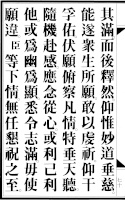 其滿而後釋然仰惟妙道垂慈
能遂衆生所願敢以虔祈仰干
孚佑伏願俯察凡情特垂天聽
隨機赴感應念從心或利己利
他或爲幽爲顯悉令志滿毋使
願違臣等下情無任懇祝之至